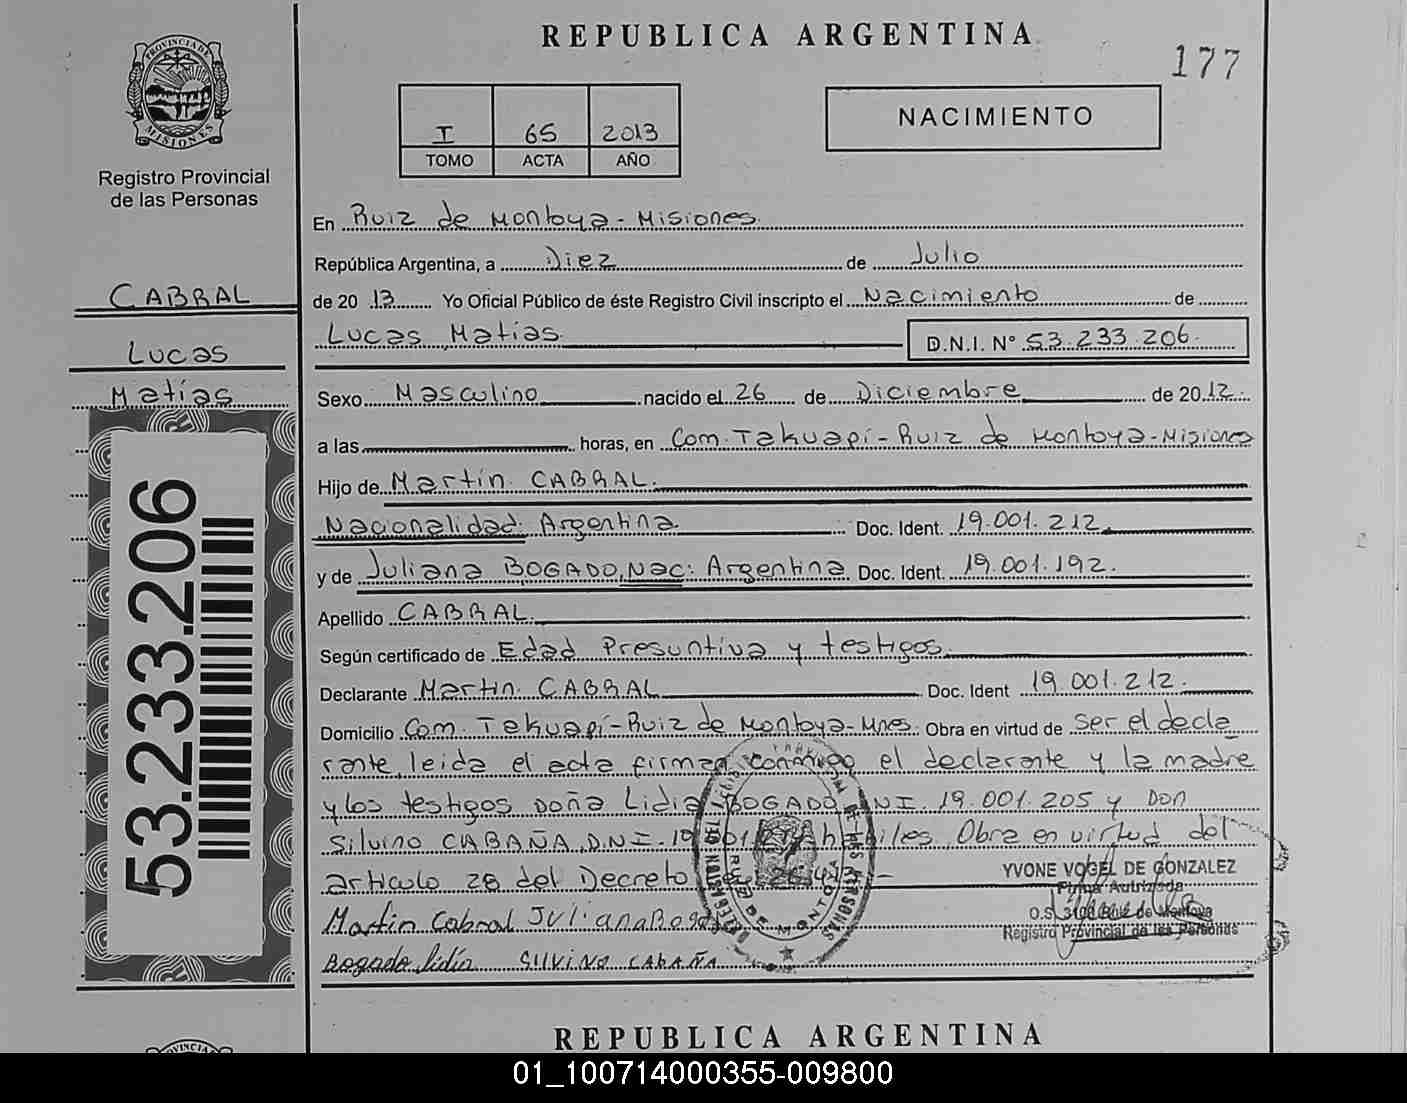 REPUBLICA ARGENTINA
177
PROVINCIA DE
MISIONES
Registro Provincial
de las Personas
I 65 2013
TOMO ACTA AÑO
NACIMIENTO
CABRAL
Lucas
Matías
53.233.206
En Ruiz de Montoya - Misiones.
República Argentina, a Diez de Julio
de 2013 Yo Oficial Público de éste Registro Civil inscripto el Nacimiento de
Lucas Matías. D.N.I. N° 53.233.206.
Sexo Masculino nacido el 26 de Diciembre de 2012.
a las horas, en Com. Takuapí - Ruiz de Montoya - Misiones
Hijo de Martín CABRAL.
Nacionalidad: Argentina. Doc. Ident. 19.001.212.
y de Juliana BOGADO, Nac: Argentina Doc. Ident. 19.001.192.
Apellido CABRAL.
Según certificado de Edad Presuntiva y testigos.
Declarante Martín CABRAL Doc. Ident 19.001.212.
Domicilio Com. Takuapí - Ruiz de Montoya - Mnes. Obra en virtud de ser el decla
rante, leida el acta firman conmigo el declarante y la madre
y los testigos Doña Lidia BOGADO 19.001.205 y Don
Silvino CABAÑA D.N.I. Obra en virtud del
articulo 28 del Decreto
Martin Cabral Juliana
Bogado lidia SILVINO CABAÑA
RUIZ DE MONTOYA
YVONE VOGEL DE GONZALEZ
Firma Autrizada
O.S. 3108 Ruiz de Montoya
Registro Provincial de las Personas
REPUBLICA ARGENTINA
01_100714000355-009800